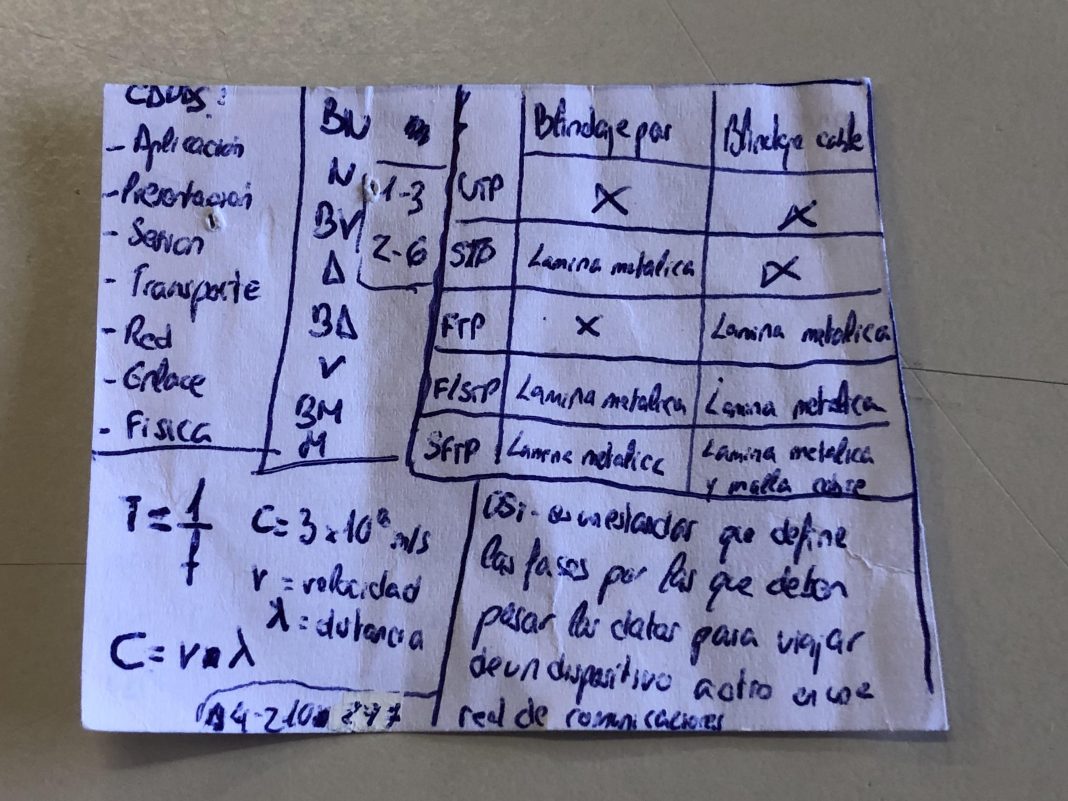 - Aplicación
- Presentación
- Sesion
- Transporte
- Red
- Enlace
- Fisica
BN
N
BV
Δ
BΔ
V
BM
M
1-3
2-6
Blindaje par
Blindaje cable
UTP X X
STP Lamina metalica X
FTP X Lamina metalica
F/STP Lamina metalica Lamina metalica
SFTP Lamina metalica Lamina metalica
y malla cobre
T = 1
f
C = 3 x 10⁸ m/s
v = velocidad
λ = distancia
C = v • λ
A4-210x 297
OSI - es un estandar que define
las fases por las que deben
pasar los datos para viajar
de un dispositivo a otro en una
red de comunicaciones